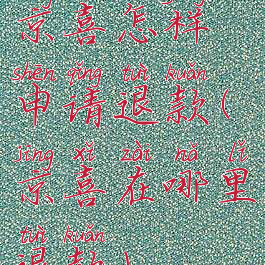 京喜怎样
shēn qǐng tuì kuǎn
申请退款(
jīng xǐ zài nǎ lǐ
京喜在哪里
tuì kuǎn
退款)